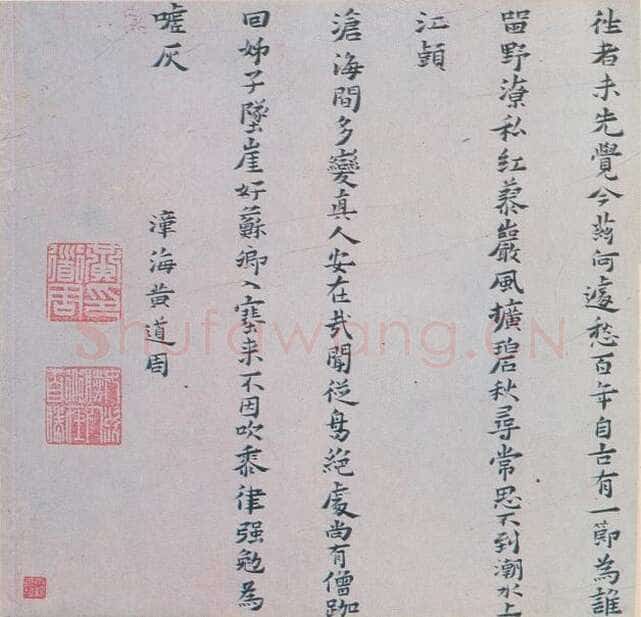 往者未先覺今茲何遽愁百年自古有一節為誰
留野潦私紅蓼嚴風擴碧秋尋常思不到潮水上
江頭
滄海間多變真人安在哉聞從絕處尚有僧跏
回姊子墜崖好蘇卿入塞来不因吹黍律强勉為
噓灰
漳海黃道周
Shufawang.CN